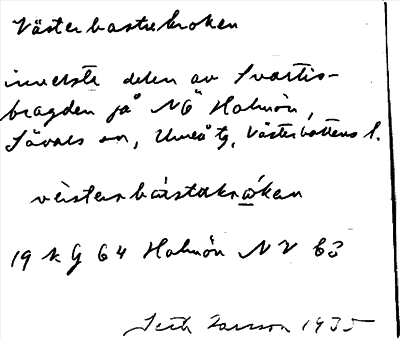 Västerbastukroken
innersta delen av Svartis-
bragden på NÖ Holmön,
Sävars sn, Umeå tg, Västerbottens l.
vèsterbástukrωken
19 k G 64 Holmön NV
Seth Jansson 1935